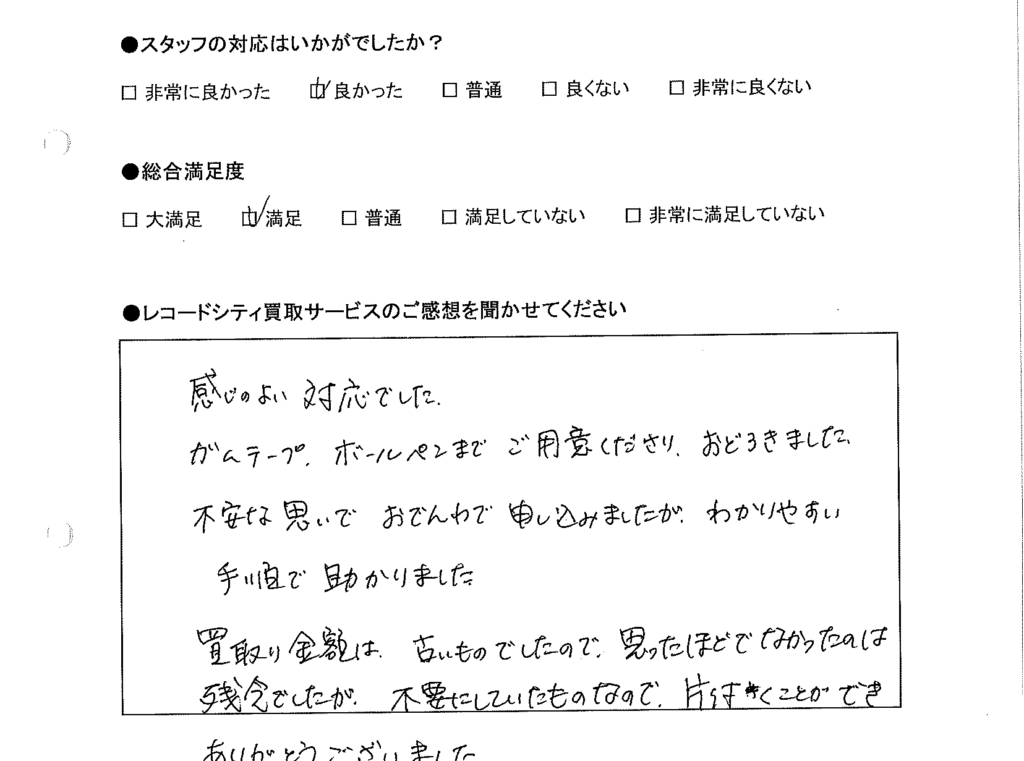 ●スタッフの対応はいかがでしたか？
□ 非常に良かった □ 良かった □ 普通 □ 良くない □ 非常に良くない
●総合満足度
□ 大満足 □ 満足 □ 普通 □ 満足していない □ 非常に満足していない
●レコードシティ買取サービスのご感想を聞かせてください
感じのよい 対応でした。
ガムテープ、ボールペンまで ご用意くださり、おどろきました。
不安な思いで おでんわで 申し込みましたが、わかりやすい
手順で 助かりました
買取り金額は、古いものでしたので、思ったほどでなかったのは
残念でしたが、不要にしていたものなので、片付くことができ
ありがとうございました